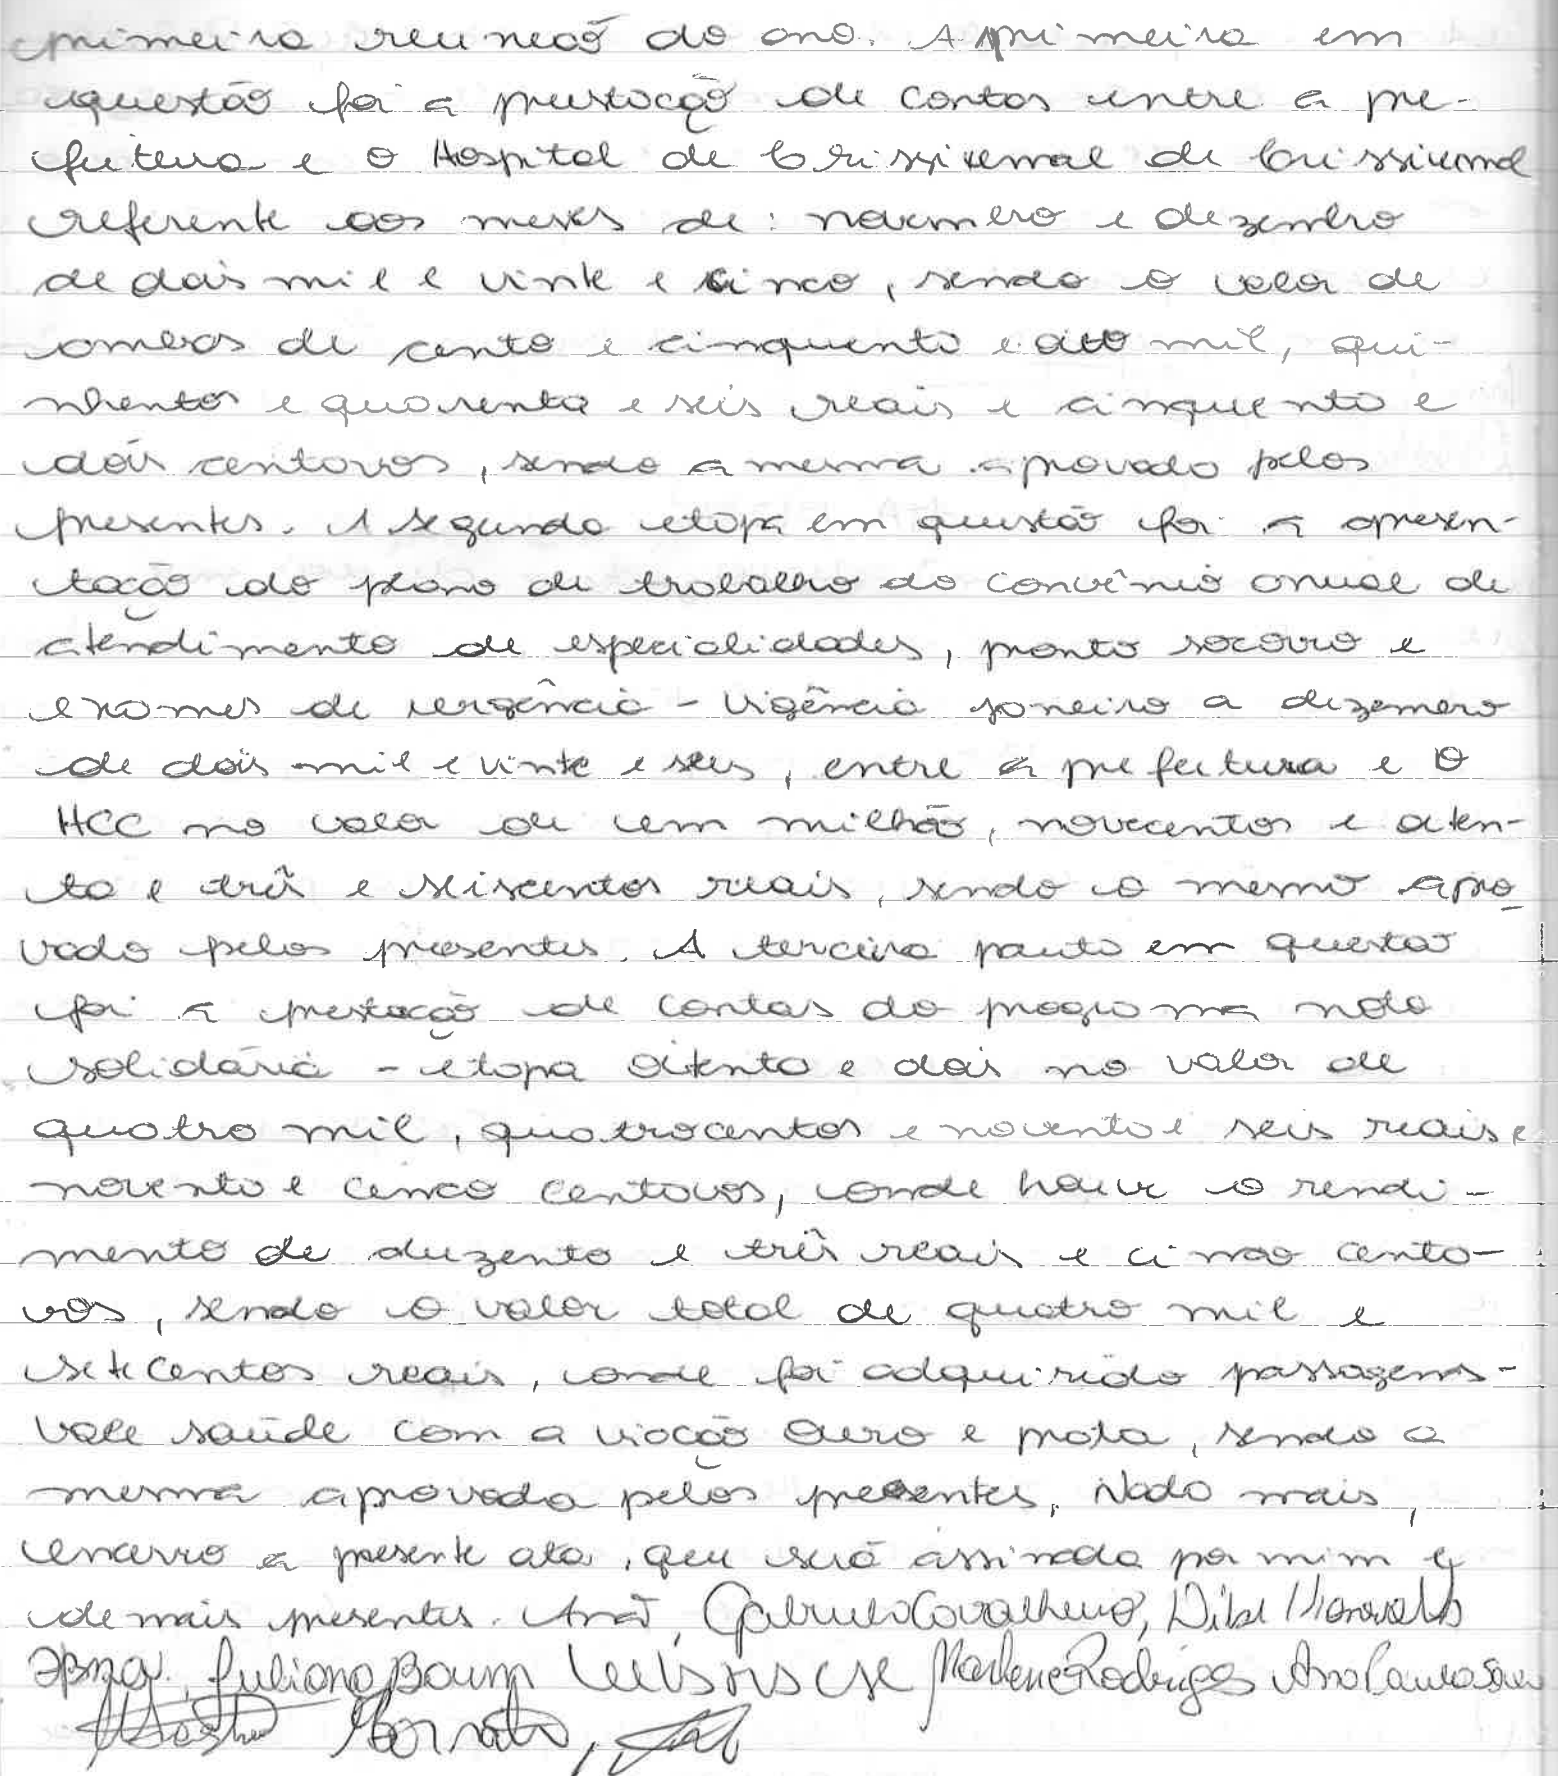 primeira reunião do ano. A primeira em
questão foi a prestação de contas entre a pre-
feitura e o Hospital de Crissiumal de Crissiumal
referente aos meses de: novembro e dezembro
de dois mil e vinte e cinco, sendo o valor de
ambos de cento e cinquenta e oito mil, qui-
nhentos e quarenta e seis reais e cinquenta e
dois centavos, sendo a mesma aprovada pelos
presentes. A segunda etapa em questão foi a apresen-
tação do plano de trabalho do convênio anual de
atendimento de especialidades, pronto socorro e
exames de urgência - Vigência janeiro a dezembro
de dois mil e vinte e seis, entre a prefeitura e o
HCC no valor de um milhão, novecentos e oiten-
ta e três e seiscentos reais, sendo o mesmo apro-
vado pelos presentes. A terceira pauta em questão
foi a prestação de contas do programa nota
solidária - etapa oitenta e dois no valor de
quatro mil, quatrocentos e noventa e seis reais e
noventa e cinco centavos, onde houve o rendi-
mento de duzento e três reais e cinco centa-
vos, sendo o valor total de quatro mil e
setecentos reais, onde foi adquirido passagens -
Vale saúde com a viação Ouro e prata, sendo a
mesma aprovada pelos presentes. Nada mais,
encerro a presente ata, que será assinada por mim e
demais presentes. Gabriela Cavalheiro,
Juliana Baum Marlene Rodrigues Ana Paula